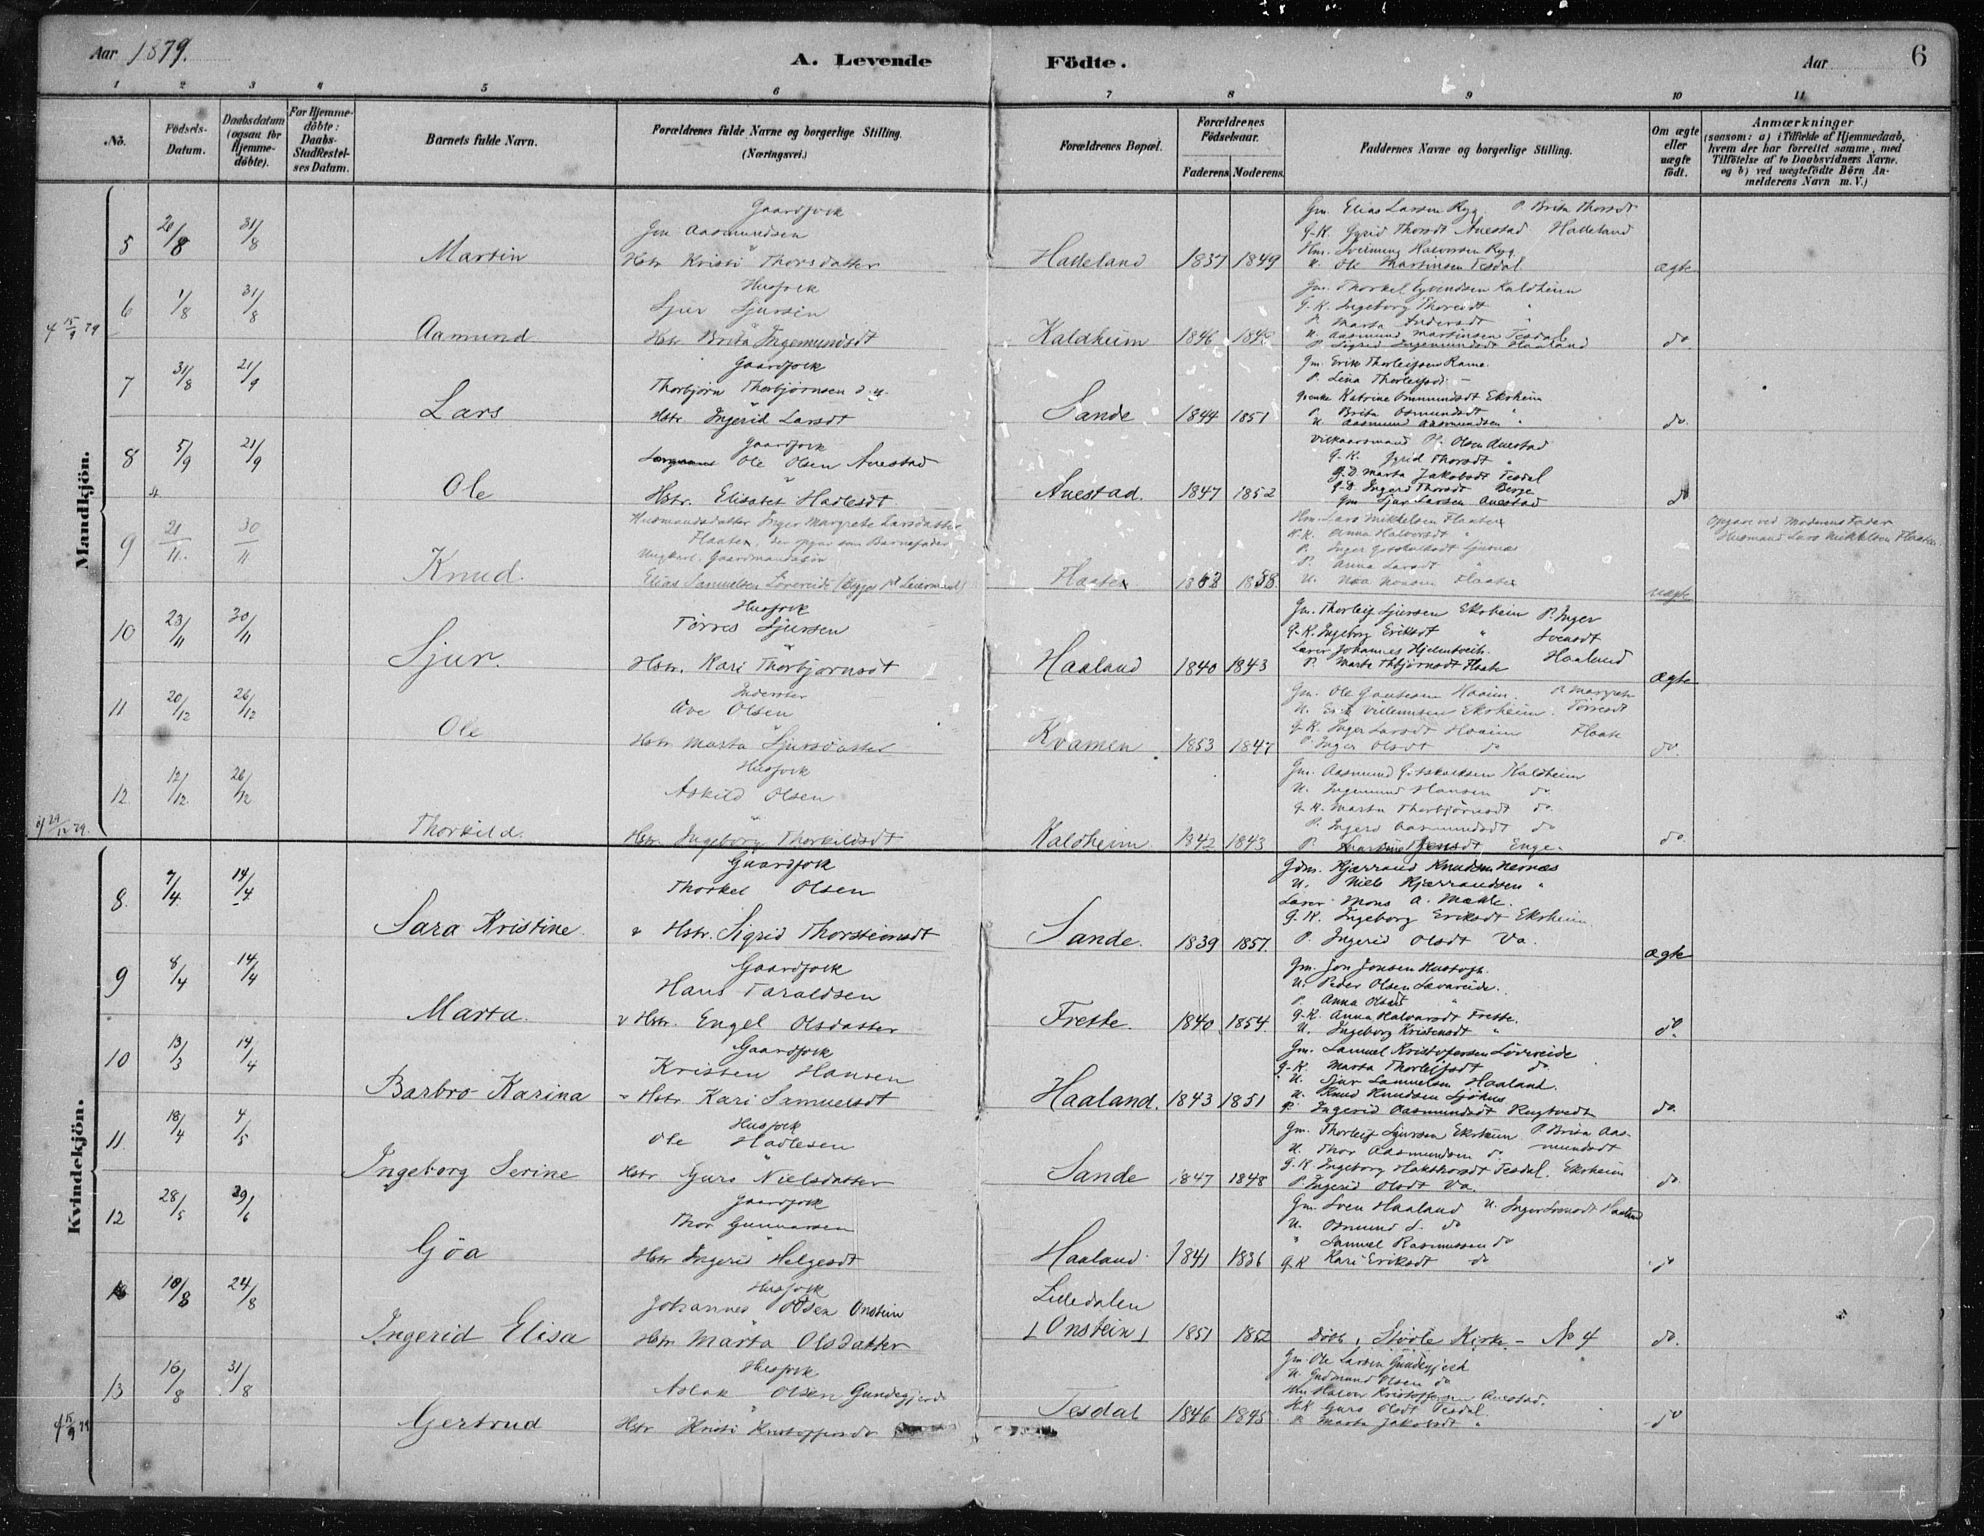 Aar 1879.
A. Levende Födte.
Aar
6
1 2 3 4 5 6 7 8 9 10 11
No.
Födsels-Datum.
Daabsdatum (ogsaa for Hjemme-döbte).
For Hjemme-döbte: Daabs-Stadfæstel-ses Datum.
Barnets fulde Navn.
Forældrenes fulde Navne og borgerlige Stilling. (Næringsvei.)
Forældrenes Bopæl.
Forældrenes Födselsaar.
Faderens Moderens
Faddernes Navne og borgerlige Stilling.
Om ægte eller uægte födt.
Anmærkninger
(saasom: a) i Tilfælde af Hjemmedaab, hvem der har forrettet samme, med Tilföielse af to Daabsvidners Navne. og b) ved uægtefödte Börn An-melderens Navn m. V.)
Mandkjön.
5 20/8 31/8
Martin
Gaardfolk
Jon Aasmundsen
Hstr Kristi Thorsdatter
Hadeland 1837 1849
Gm. Elias Larsen Ryg P. Brita Thorsdt
G-K. Gyrid Thorsdt Auestad Hadeland
Hm. Sveinung Halvorsen Ryg.
U. Ole Martinsen Tesdal
ægte
6 1/8 31/8
Aamund
Husfolk
Sjur Sjursen
Hstr Brita Ingemundsdt
Kaldheim 1846
Gm. Thorkel Eyvindsen Kaldheim
G.K. Ingeborg Thoresdt "
P. Marta Andersdt "
U. Aasmund Martinsen Tesdal
P. Sigrid Ingemundsdt Haaland
do
15/9 79
7 31/8 21/9
Lars
Gaardfolk
Thorbjørn Thorbjørnsen d.y.
Hstr Ingerid Larsdt
Sande 1844 1851
Gm. Erik Thorleifsen Rame
P. Lina Thorleifsd. –
Genke Katrine Ommundsdt Ekrheim
P. Brita Osmundsdt "
U. Aasmund Aasmundsen "
do
8 5/9 21/9
Ole
Gaardfolk
Ole Olsen Auestad
Hstr. Elisabet Hadlesdt
Auestad. 1847 1852
Vilkaarsmand O. Olsen Auestad
G.K. Gyrid Thorsdt "
G.D. Marta Jakobsdt Tesdal
G.D. Ingerd Thorsdt Berge
Gm Sjur Larsen Auestad
do
9 21/11. 30/11
Knud.
Husmandsdatter Inger Margrete Larsdatter
Flaaten, der opgav som Barnefader
Ungkarl. Gaardmandssøn
Elias Samuelsen Løvereide (Begges 1st Leiermaal)
Flaaten
Hm. Lars Mikkelsen Flaaten
H.K. Anna Halvorsdt "
P. Anna Larsdt "
U. Noa Monsen Flaaten
uægte
Opgave ved Moderens Fader
Husmand Lars Mikkelsen Flaaten
10 23/11 30/11
Sjur.
Husfolk
Tørres Sjursen
Hstr. Kari Thorbjørnsdt
Haaland 1840 1843
Gm. Thorleif Sjursen Ekrheim P. Inger
G-K. Ingeborg Eriksdt " Svensdt
Lærer Johannes Hjelmtveit. Haaland
P. Marta Thbjørnsdt Flaate
ægte
11 20/12 26/12
Ole
Inderster
Ove Olsen
Hstr Marta Sjursdatter
Kvamen 1853 1847
Gm. Ole Gautesen Haaim. P. Margrete
U. Erik Villumsen Ekrheim. Tørresdt
G-K. Inger Larsdt Haaim Flaate
P. Inger Olsdt do
do.
12. 12/12 26/12
Thorkild.
Husfolk
Askild Olsen
Hstr Ingeborg Thorkildsdt
Kaldheim 1842 1843
Gm. Aasmund Gitskalksen Kaldheim
U. Ingemund Hansen do
G.K. Marta Thorbjørnsdt do.
P. Ingerd Aasmundsdt do
P. Jensdt. Enge.
do.
29/12 79.
Kvindekjön.
8. 7/4 14/4
Sara Kristine
Gaardfolk
Thorkel Olsen
Hstr. Sigrid Thorsteinsdt
Sande. 1839 1857.
Gdm. Kjærrand Knudsen Nernæs
U. Niels Kjærrandsen "
Lærer Mons A. Mæhle.
G.K. Ingeborg Eriksdt Ekrheim
P. Ingerid Olsdt Va.
ægte
9 8/4 14/4
Marta.
Gaardfolk
Hans Taraldsen
Hstr. Engel Olsdatter
Frette. 1840 1854.
Gm. Jon Jonsen Hustoft.
U. Peder Olsen Løvereide.
P. Anna Olsdt "
G-K. Anna Halvorsdt Frette.
U. Ingeborg Kristensdt "
do.
10 13/3 14/4
Barbro Karina
Gaardfolk
Kristen Hansen
Hstr. Kari Samuelsdt
Haaland. 1843 1851
Gm. Samuel Kristofersen Løvereide
G-K. Marta Thorleifsdt do
U. Sjur Samuelsen Haaland.
U. Knud Knudsen Sjøhus
P. Ingerid Aasmundsdt Rugtvedt
do.
11. 18/4 4/5
Ingeborg Serine
Husfolk
Ole Hadlesen
Hstr Guro Nielsdatter
Sande 1847 1848
Gm. Thorleif Sjursen Ekrheim P. Brita Aas-
U. Thor Aasmundsen do mundsdt
G.K. Ingeborg Haktsorsdt Tesdal. Ekrheim
P. Ingerid Olsdt Va.
do.
12 28/5 29/6
Göa
Gaardfolk
Thor Gunnarsen
Hstr Ingerid Helgesdt
Haaland 1841 1836
Gm. Sven Haaland U. Inger Svensdt Haaland
U. Osmund S. do
" Samuel Rasmussen do
G.K Kari Eriksdt do
do
10/8 24/8
Ingerid Elisa
Husfolk
Johannes Olsen Onstein
Hstr Marta Olsdatter
Lilledalen
(Onstein) 1851 1852
Døbt i Støle Kirke – No 4
do.
13 16/8 31/8
Gertrud
Husfolk
Aslak Olsen Gundegjerde
Hstr Kristi Kristoffersdt
Tesdal 1846 1845
Gm. Ole Larsen Gundegjerd
U. Gudmund Olsen do
Hm Halvor Kristoffersen Auestad.
H.K. Guro Olsdt Tesdal.
P. Marta Jakobsdt "
do
15/9 79